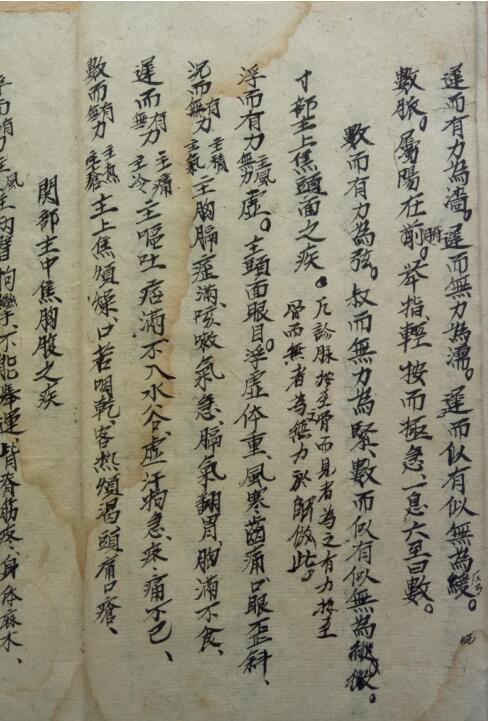 遲而有力為濇。遲而無力為濡。遲而似有似無為緩。
數脈。屬陽在前腑。举指輕按而極急、一息六至曰數。
數而有力為弦。叔而無力為緊、數而似有似無為微。
寸部主上焦頭面之疾。凡診脉按至骨而見者為之有力按至
骨而無者為之無力於餘倣此。
浮而有力主風無力主虛。主頭面眼目浮虛体重、風寒齒痛口眼歪斜、
沉而有力主積無力主氣主胸膈痞滿、咳嗽氣急膈氣翻胃、胸滿不食、
遲而有力主痛無力主冷主嘔吐痞滿不入水谷、虛汗拘急疼痛不已、
數而有力主熱無力主瘡主上焦煩燥、口苦咽乾、客熱煩渴、頭痛口瘡、
関部主中焦胸腹之疾
浮而有力主風主兩臂拘攣、不能舉運、背脊筋疼、身体麻木、